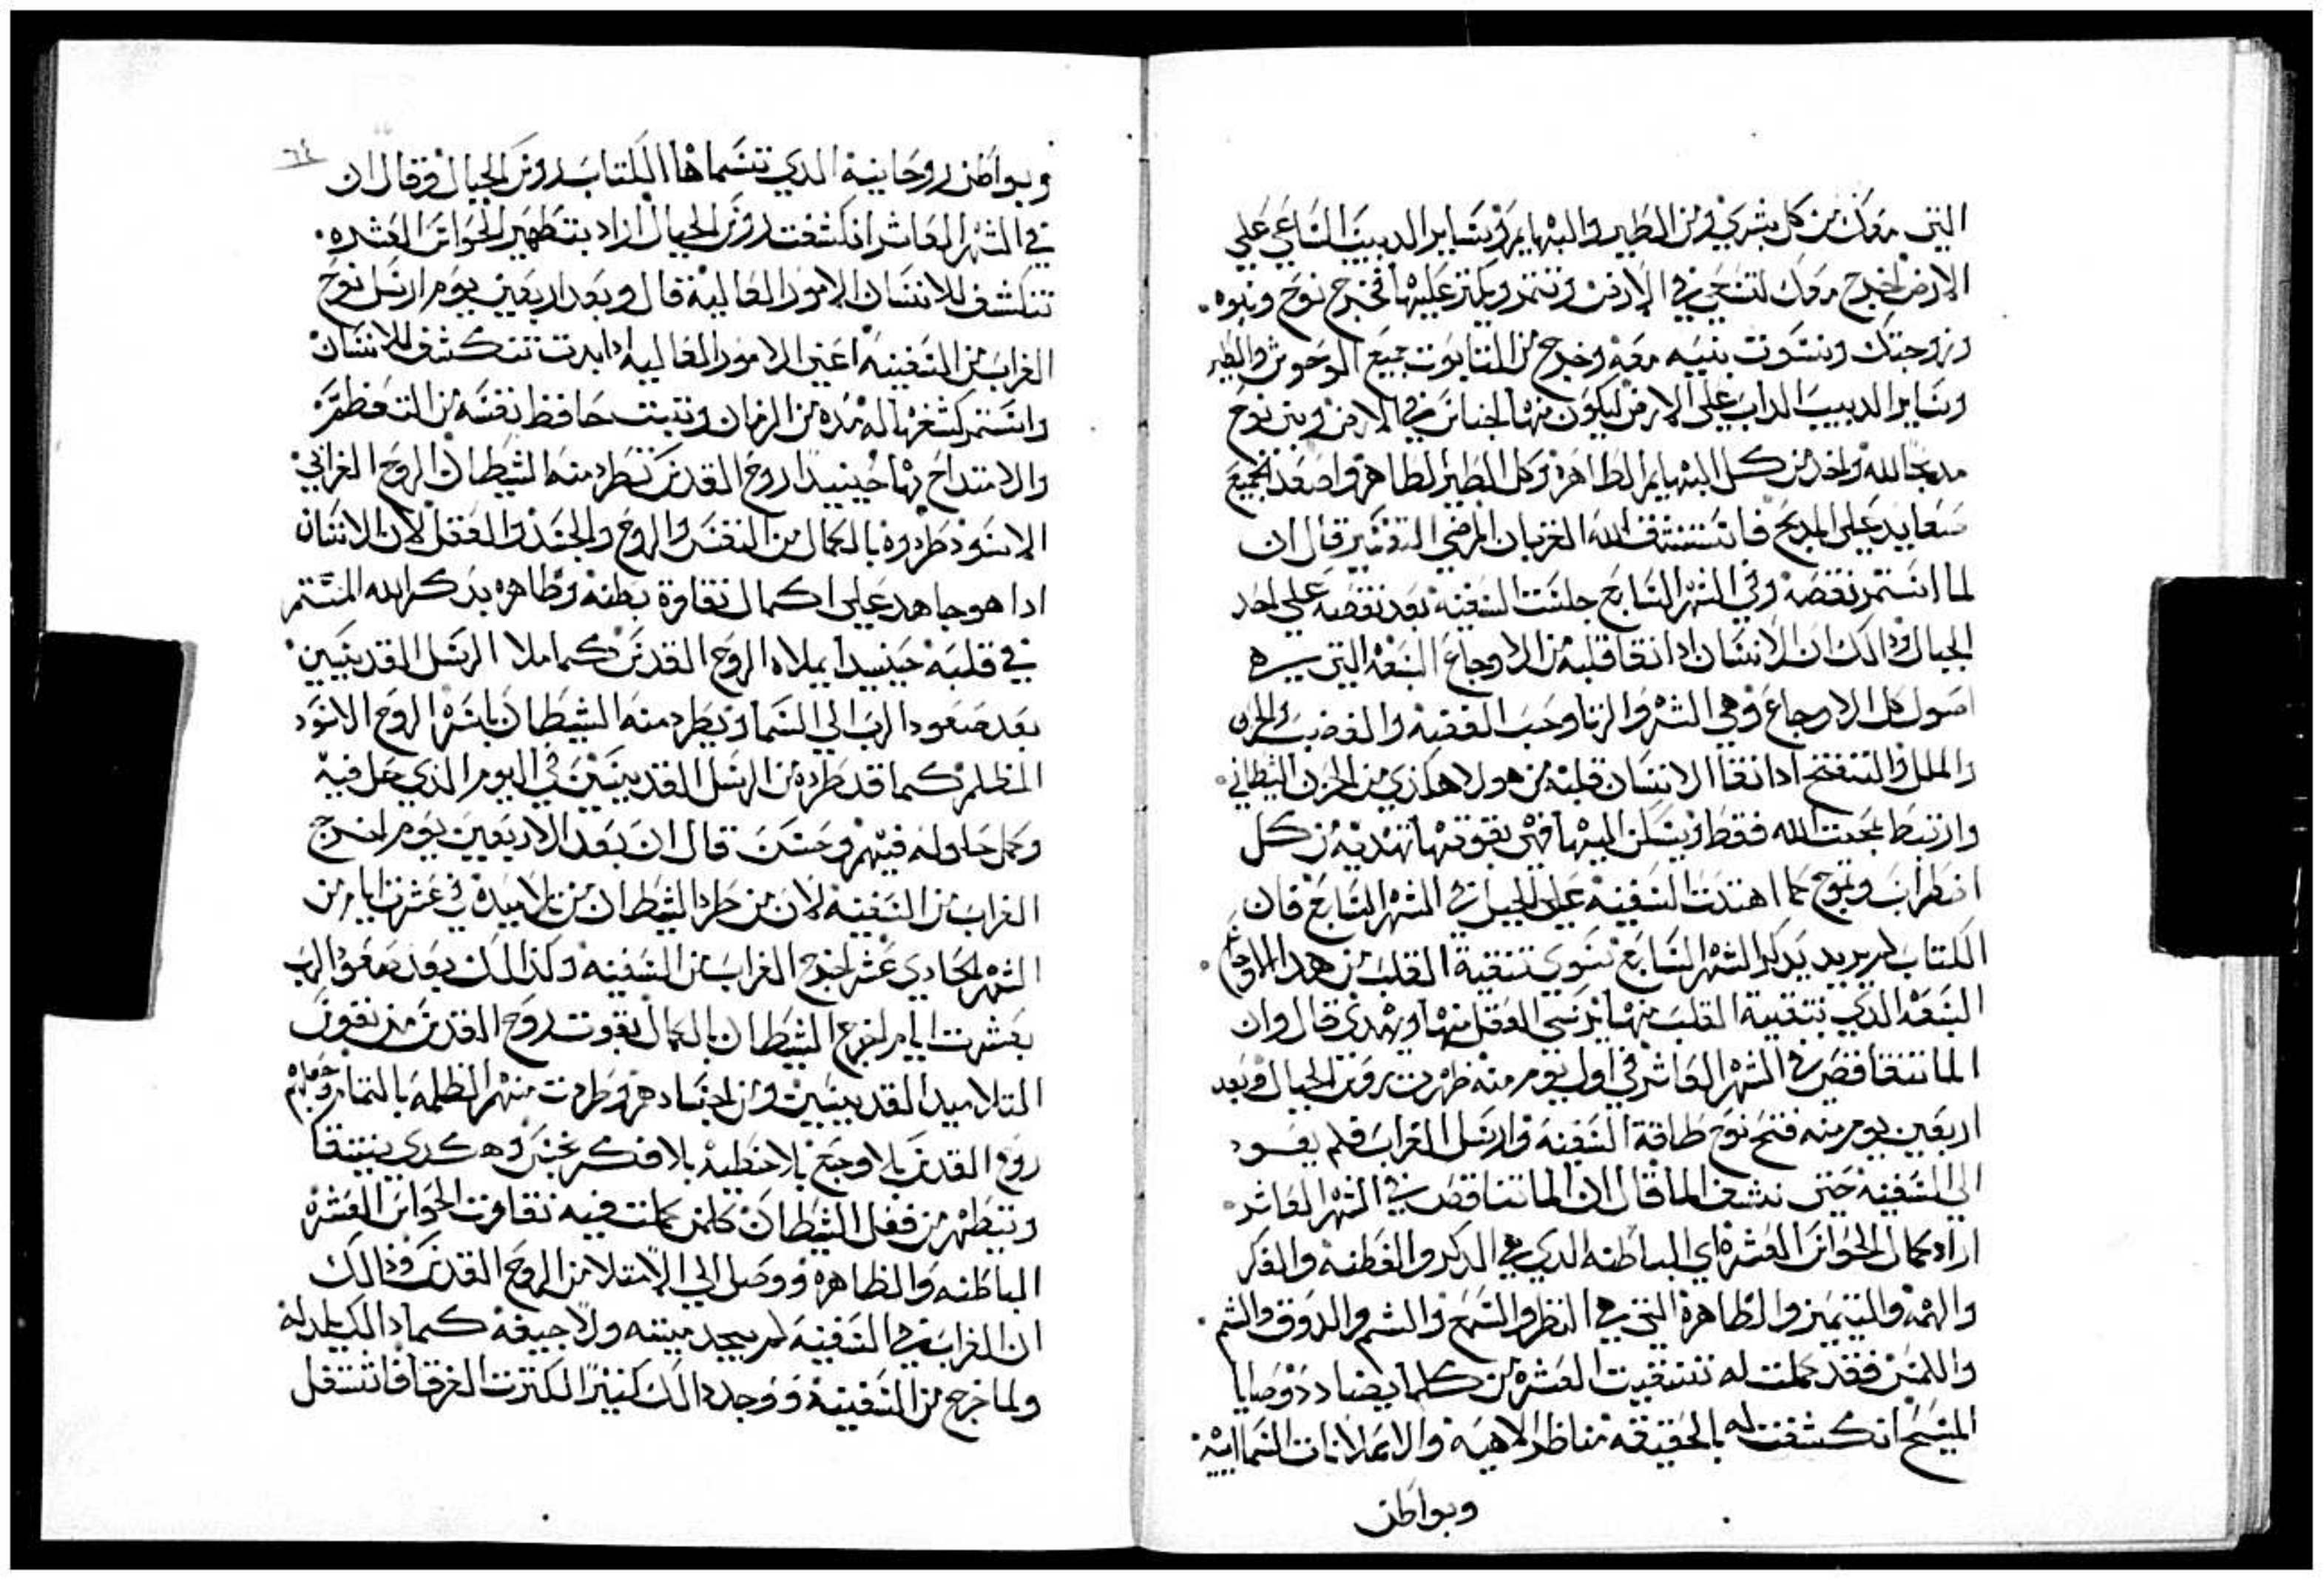 التي معك من كل بشري ومن الطير والبهايم وسايرالدبيب الساعي علي
الارض اخرج معك لتسعي في الارض وتنمو وتكثر عليها فخرج نوح وبنوه
وزوجتك ونسوت بنيه معه وخرج من التابوت جميع الوحوش والطير
وساير الدبيب الداب علي الارض ليكون منها اجناس في الارض وبني نوح
مدبحا لله واخد من كل البهايم الطاهرة وكل الطير الطاهر واصعد الجميع
صعايد علي المدبح فاستنشق الله القربان المرضي التفسير قال ان
لما استمر نقصه وفي الشهر السابع جلست السفينه بعد نقصه علي احد
الجبال ودالك ان الانسان ادا نقا قلبه من الاوجاع السبعه التي
اصول كل الاوجاع وهي الشره والزنا وحب الفضه والغضب والحزن
والملل والتنفخ ادا نقا الانسان قلبه من هولا هكذي من الحزن الشيطاني
وارتبط بمحبت الله فقط ويسكن اليها فهي بقوتها تهديه من كل
اضطراب وتموج كما اهتدت السفينه علي الجبل في الشهر السابع فان
الكتاب لم يريد بدكر الشهر السابع سوي تنقية القلب من هدا الاوجاع
السبعه الدي بتنقية القلب منها يرسي العقل منها ويهدي قال وان
الما تناقص في الشهر العاشر في اول يوم منه ظهرت روس الجبال وبعد
اربعين يوم منه فتح نوح طاقة السفينه وارسل الغراب فلم يعود
الي السفينه حتي نشف الما قال ان الما تناقص في الشهر العاشر
اراد بكمال الحواس العشره اي الباطنه الدي هي الدكر والفطنه والفكر
والهمه والتتميز والظاهرة التي هي النظر والسمع والشم والدوق والشم
واللمس فقد كملت له تنقيت العشره من كلما يضادد وصايا
المسيح انكشفت له بالحقيقه مناظر الاهيه والاعلانات السماايه
وبواطن
وبواطن روحانيه الدي تسماها الكتاب روس الجبال وقال ان
في الشهر العاشر انكشفت روس الجبال اراد بتطهير الحواس العشره
تنكشف للانسان الامور العاليه قال وبعد اربعين يوم ارسل نوح
الغراب من السفينه اعني الامور العاليه ادا بدت تنكشف للانسان
واستمر كشفها له مده من الزمان وتتبت حافظ نفسه من التعظم
والامتداح بها حينيدا روح القدس تطرد منه الشيطان الروح الغرابي
الاسود طردوه بالكمال من النفس والروح والجسد والعقل لان الانسان
ادا هو جاهد علي اكمال نقاوة بطنه وظاهره بدكر الله المستمر
في قلبه حينيدا يملاه الروح القدس كما ملا الرسل القديسين
بعد صعود الرب الي السما ويطرد منه الشيطان باسره الروح الاسود
المظلم كما قد طرده من الرسل القديسين في اليوم الذي حل فيه
وكمل حلوله فيهم وحسن قال ان بعد الاربعين يوم اخرج
الغراب من السفينه لان من طرد الشيطان من تلاميده في عشرت ايام من
الشهر الحادي عشر اخرج الغراب من السفينه وكذالك بعد صعود الرب
بعشرت ايام اخرج الشيطان بالكمال بقوت روح القدس من نفوس
التلاميد القديسين ومن اجسادهم وطردت منهم الظلمه بالتمام
روح القدس بلا وجع بلا خطيه بلا فكر نجس وهكدي يتنقا
ويتطهر من فعل الشيطان كلمن كملت فيه نقاوت الحواس العشره
الباطنه والظاهره ووصل الي الامتلا من الروح القدس ودالك
ان الغراب في السفينه لم يجد ميته ولا جيفه كما دالك
ولما خرج من السفينه ووجد دالك كثيرا لكترت الغرقا فاشتغل